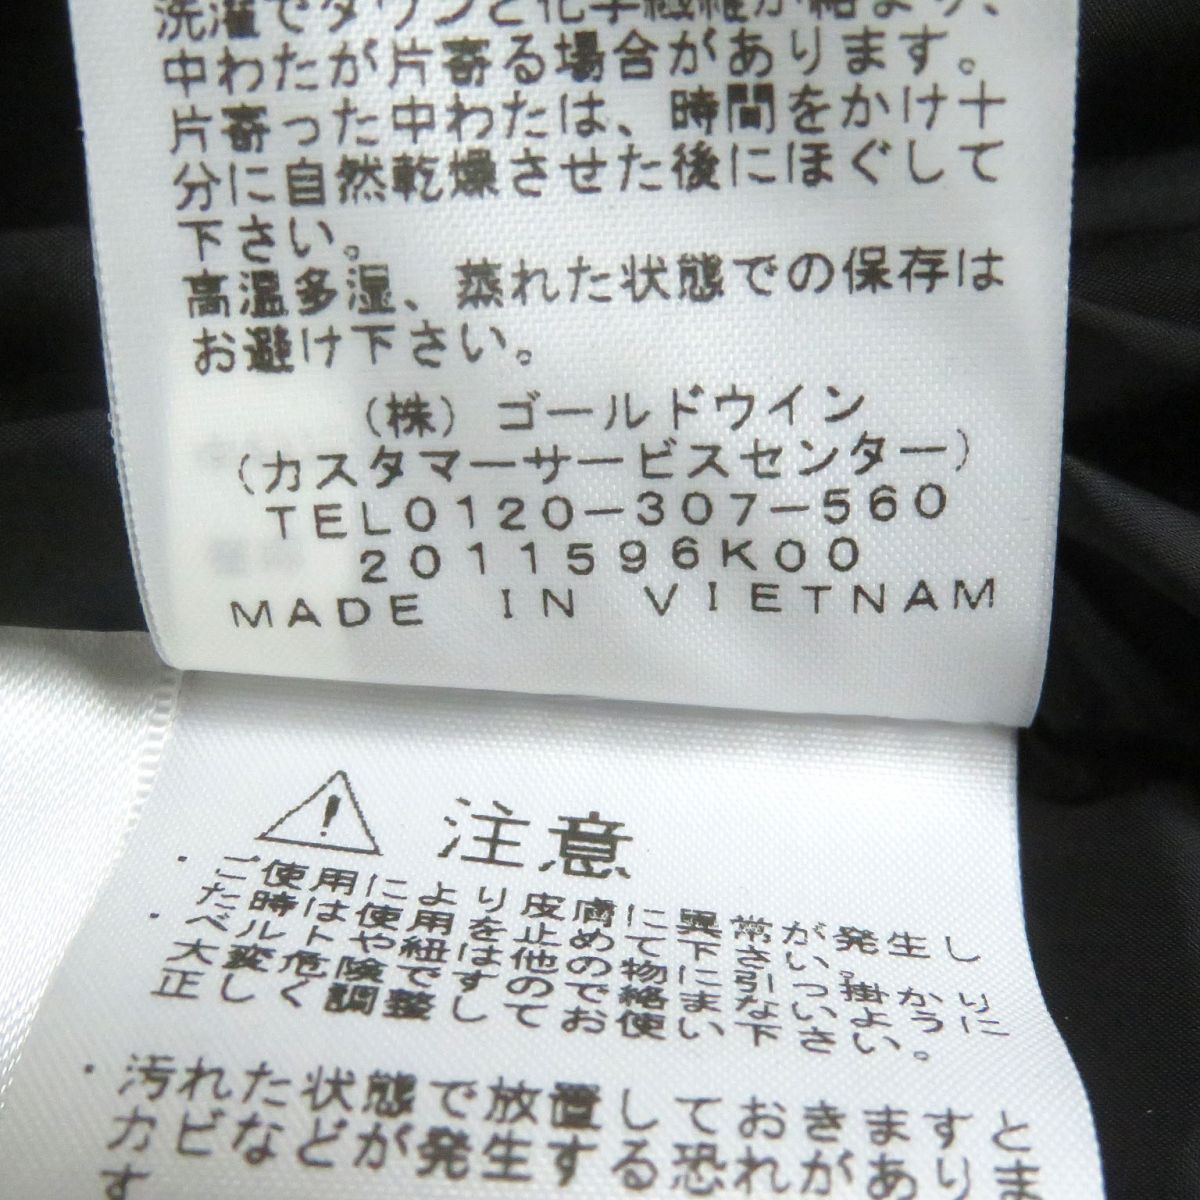 洗濯でダウンと化学繊維が絡まり、
中わたが片寄る場合があります。
片寄った中わたは、時間をかけ十
分に自然乾燥させた後にほぐして
下さい。
高温多湿、蒸れた状態での保存は
お避け下さい。
(株)ゴールドウイン
(カスタマーサービスセンター)
TEL0120-307-560
2011596K00
MADE IN VIETNAM
注意
・ご使用により皮膚に異常が発生し
た時は使用を止めて下さい。
・ベルトや紐は他の物に引っ掛かり
大変危険ですので絡まないように
正しく調整してお使い下さい。
・汚れた状態で放置しておきますと
カビなどが発生する恐れがありま
す